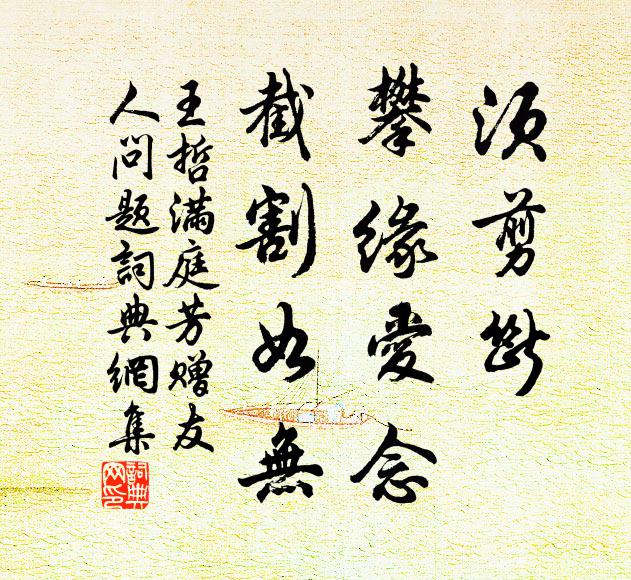 須剪斷
攀緣愛念
截割如無
王哲滿庭芳赠友
人问题詞典網集
詞典
网印